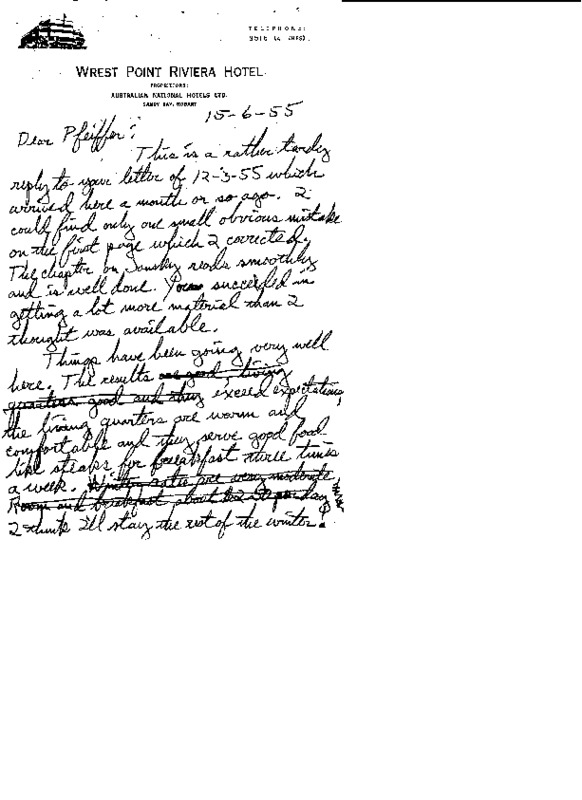 TELEPHONE:
WREST POINT RIVIERA HOTEL
PROPRIETORS:
AUSTRALIAN NATIONAL HOTELS LTD.
SANDY BAY, HOBART
15-6-55
Dear Pfeiffer:
This is a rather tardy
reply to your letter of 12-3-55 which
arrived here a month or so ago. I
could find only one small obvious mistake
on the first page which I corrected.
The chapter on Jansky reads smoothly
and is well done. You succeeded in
getting a lot more material than I
thought was available.
Things have been going very well
here. The results are good, living
quarters good and they exceed expectations,
the living quarters are warm and
comfortable and they serve good food
like steaks for breakfast three times
a week. Winter rates are very moderate.
Room and breakfast about day
I think I'll stay the rest of the winter.